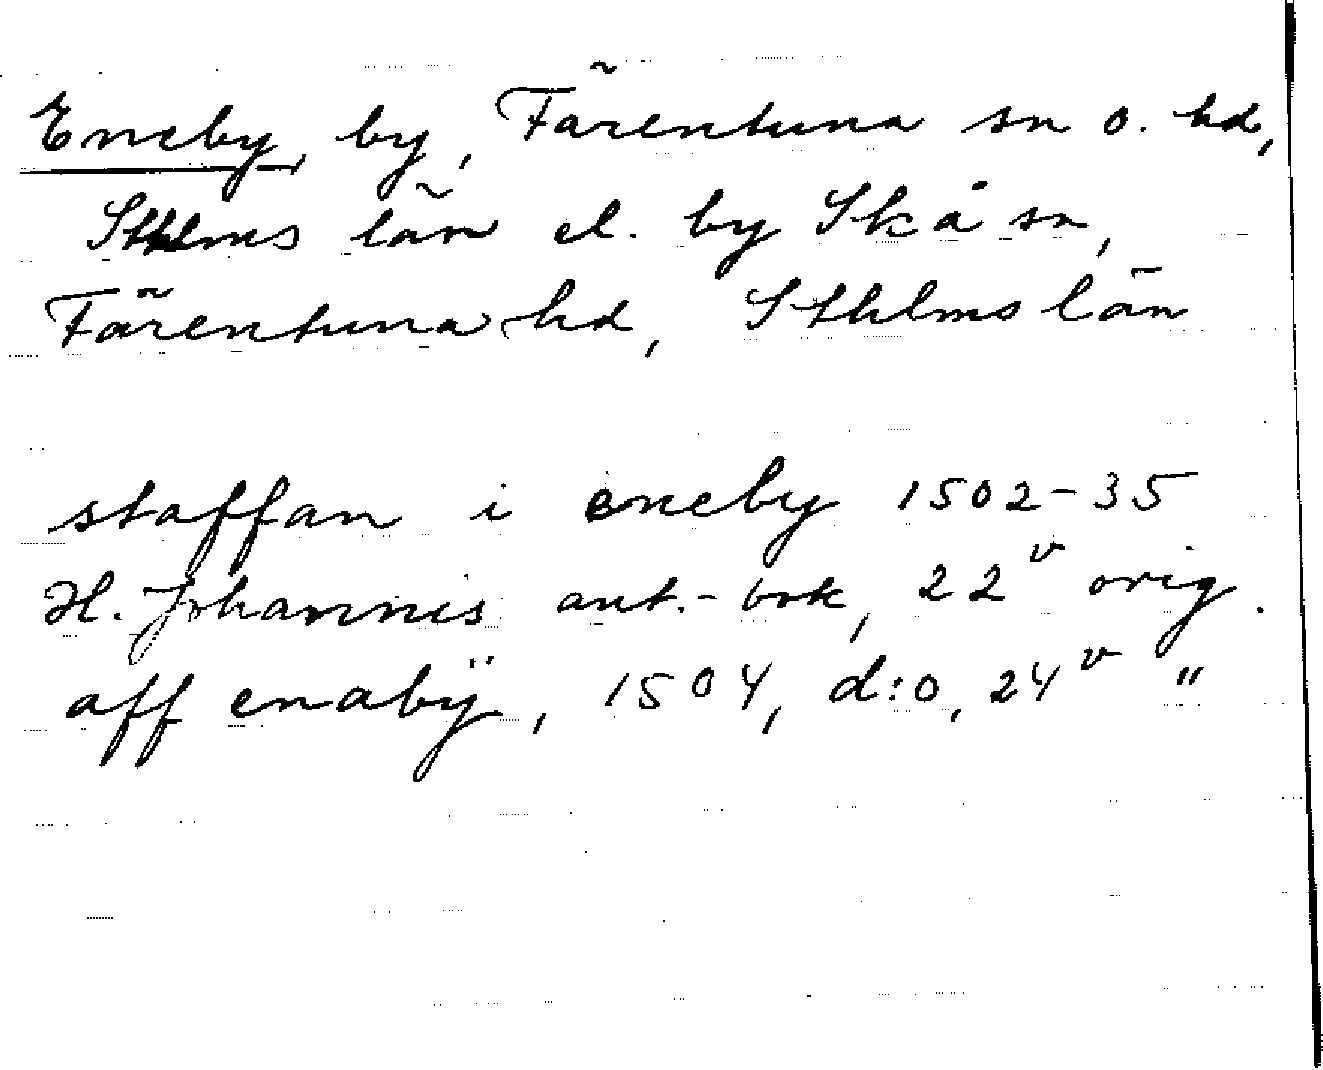 Eneby, by, Färentuna sn o. hd,
Sthlms län el. by Skå sn,
Färentuna hd, Sthlms län
staffan i eneby 1502-35
H. Johannis ant.- bok, 22v orig.
aff enabÿ, 1504, d:o, 24v "